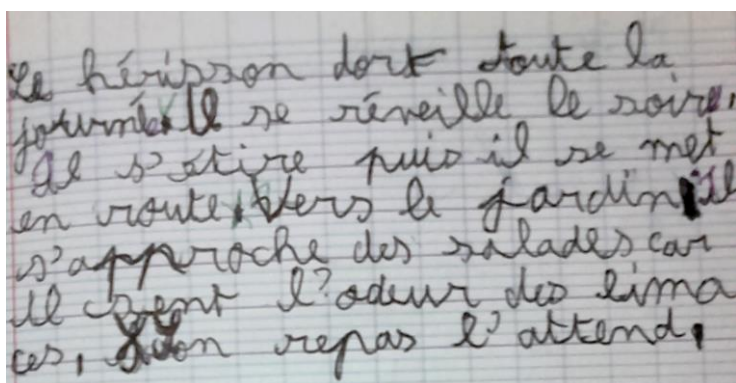 Le hérisson dort toute la
journé. Il se réveille le soire.
Il s'étire puis il se met
en route. Vers le jardin. Il
s'approche des salades car
il sent l'odeur des lima
ces, son repas l'attend.